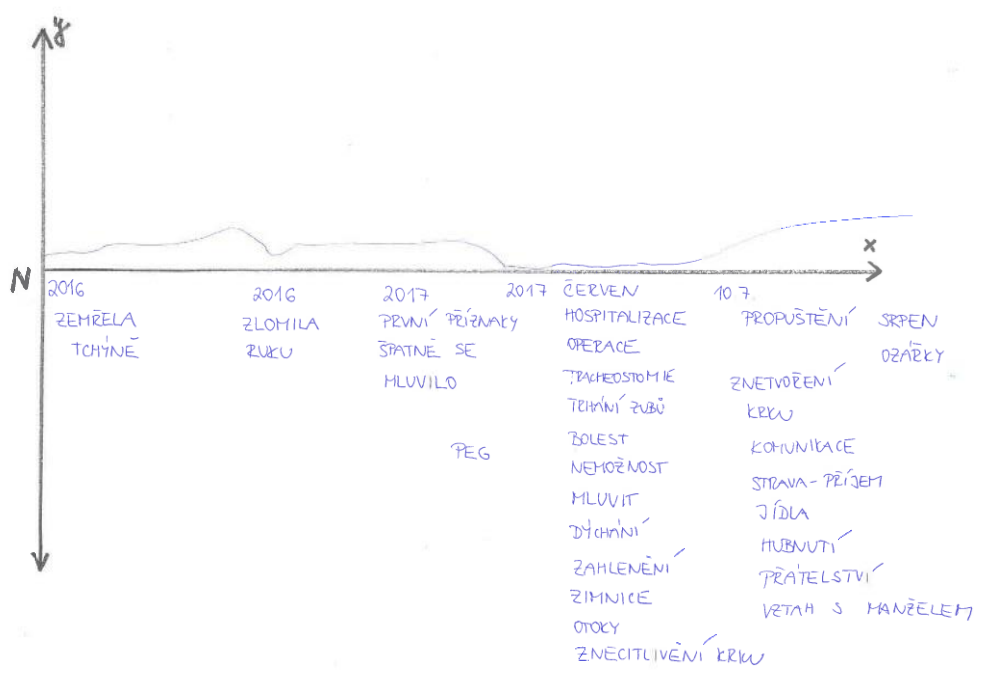 y
x
N
2016
ZEMŘELA
TCHÝNĚ
2016
ZLOMILA
RUKU
2017
PRVNÍ PŘÍZNAKY
ŠPATNĚ SE
MLUVILO
PEG
2017 ČERVEN
HOSPITALIZACE
OPERACE
TRACHEOSTOMIE
TRHÁNÍ ZUBŮ
BOLEST
NEMOŽNOST
MLUVIT
DÝCHÁNÍ
ZAHLENĚNÍ
ZIMNICE
OTOKY
ZNECITLIVĚNÍ KRKU
10 7.
PROPUŠTĚNÍ
ZNETVOŘENÍ
KRKU
KOMUNIKACE
STRAVA - PŘÍJEM
JÍDLA
HUBNUTÍ
PŘÁTELSTVÍ
VZTAH S MANŽELEM
SRPEN
OZÁŘKY